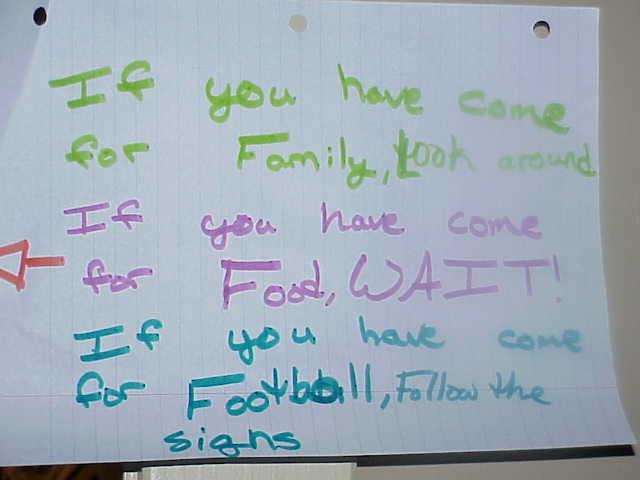 If you have come
for Family, Look around
If you have come
for Food, WAIT!
If you have come
for Football, Follow the
signs